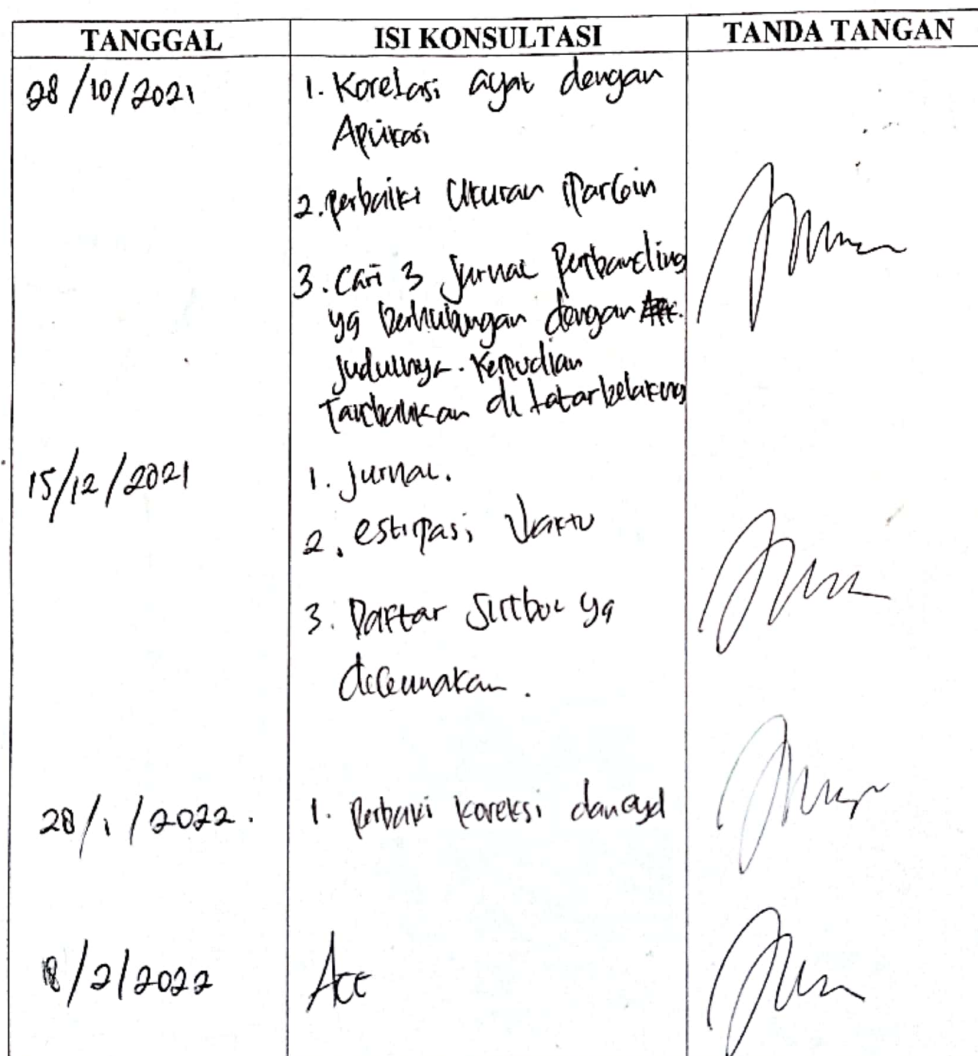 TANGGAL ISI KONSULTASI TANDA TANGAN
28/10/2021 1. Korelasi ayat dengan
Aplikasi
2. perbaiki Ukuran Margin
3. Cari 3 Jurnal Perbanding
yg berhubungan dengan
judulnya. Kemudian
Tambahkan di latar belakang
15/12/2021 1. Jurnal.
2. estimasi Waktu
3. Daftar Simbol yg
digunakan.
28/1/2022. 1. Perbaiki koreksi
8/2/2022 Acc